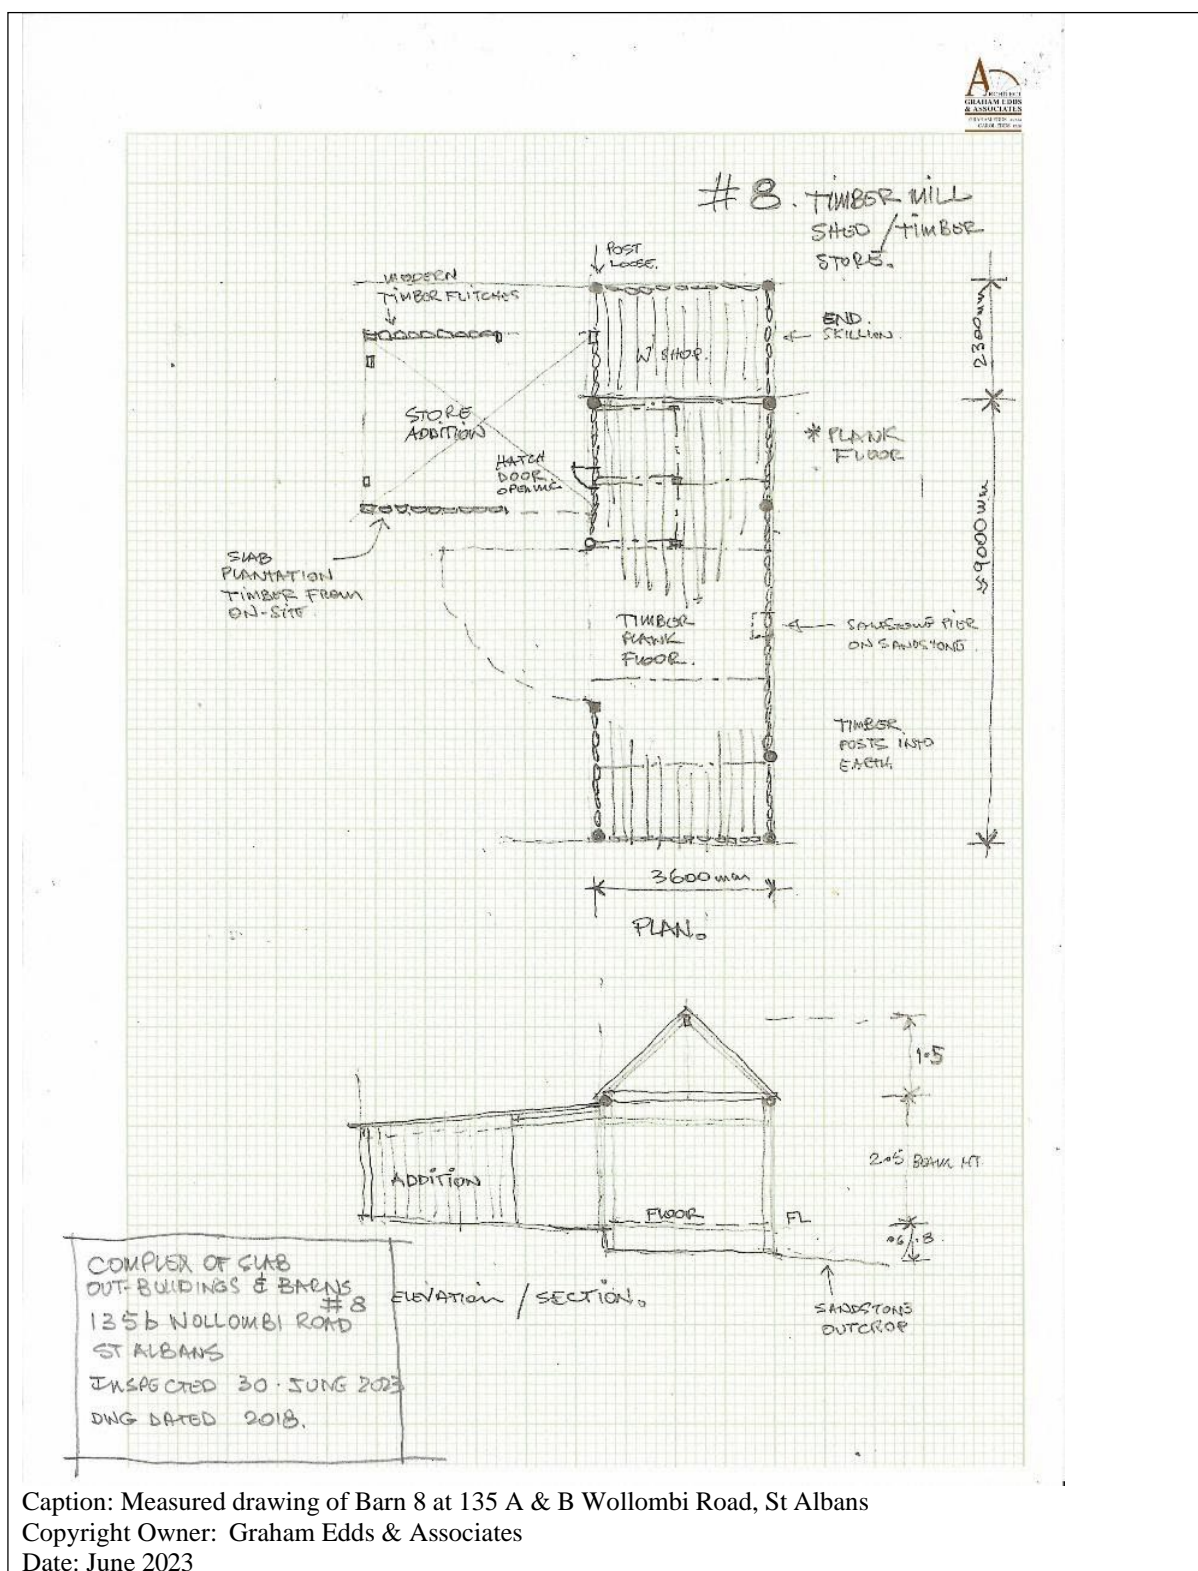 ARCHITECT
GRAHAM EDDS
& ASSOCIATES
#8. TIMBER MILL
SHED / TIMBER
STORE.
POST
LOOSE.
MODERN
TIMBER FLITCHES
END
SKILLION.
2300mm
W'SHOP.
STORE
ADDITION
* PLANK
FLOOR
HATCH
DOOR
OPENING
9000mm
SLAB
PLANTATION
TIMBER FROM
ON-SITE.
TIMBER
PLANK
FLOOR.
SANDSTONE PIER
ON SANDSTONE.
TIMBER
POSTS INTO
EARTH.
3600mm
PLAN.
1.5
2.5 BEAM HT.
ADDITION
FLOOR
FL
.06/.8
ELEVATION / SECTION.
SANDSTONE
OUTCROP
COMPLEX OF SLAB
OUT-BUILDINGS & BARNS
#8
135b WOLLOMBI ROAD
ST ALBANS
INSPECTED 30 · JUNE 2023
DWG DATED 2018.
Caption: Measured drawing of Barn 8 at 135 A & B Wollombi Road, St Albans
Copyright Owner: Graham Edds & Associates
Date: June 2023